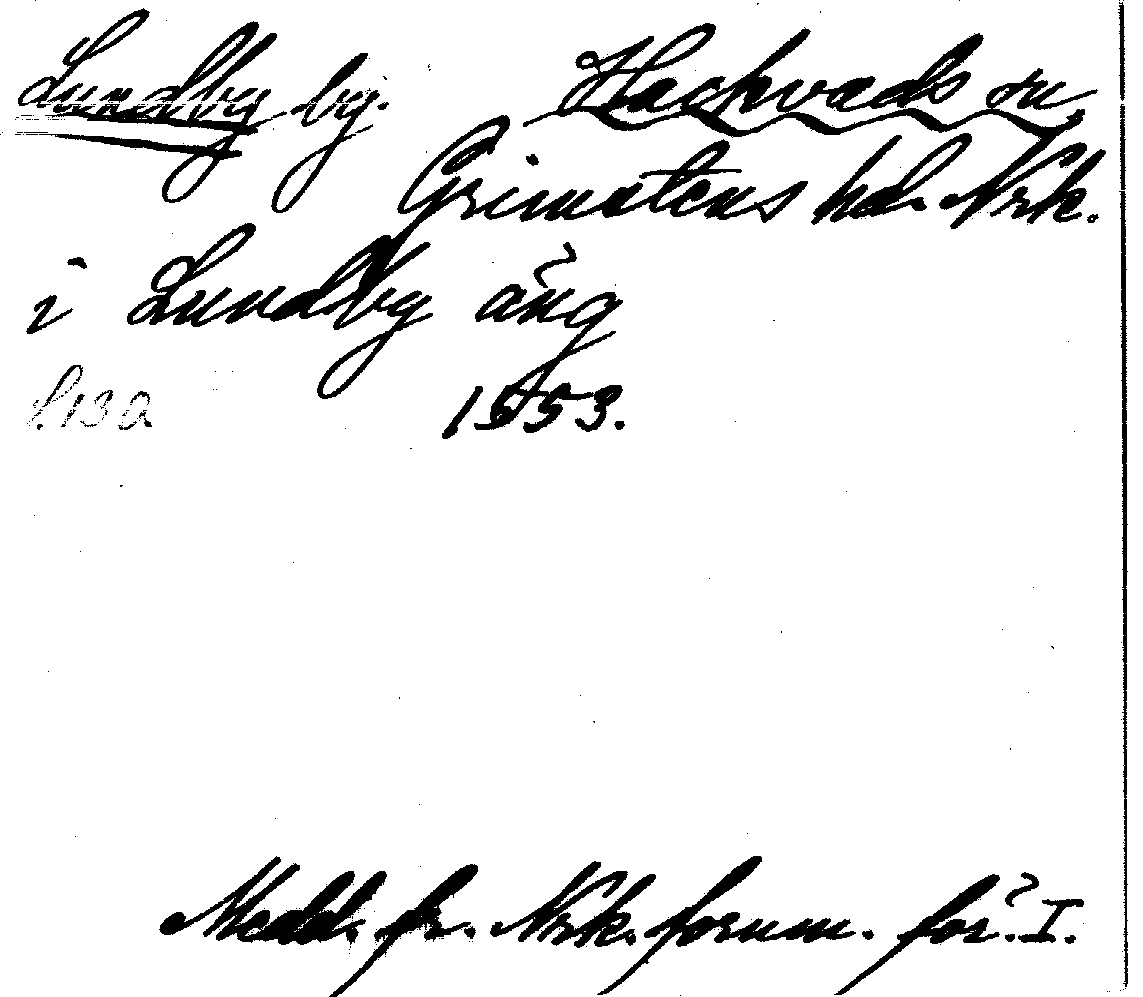 Lundby by. Hackvads sn,
Grimstens hd. Nrk.
i Lundby äng
s. 130 1553.
Medd. fr. Nrk. fornm. för. I.